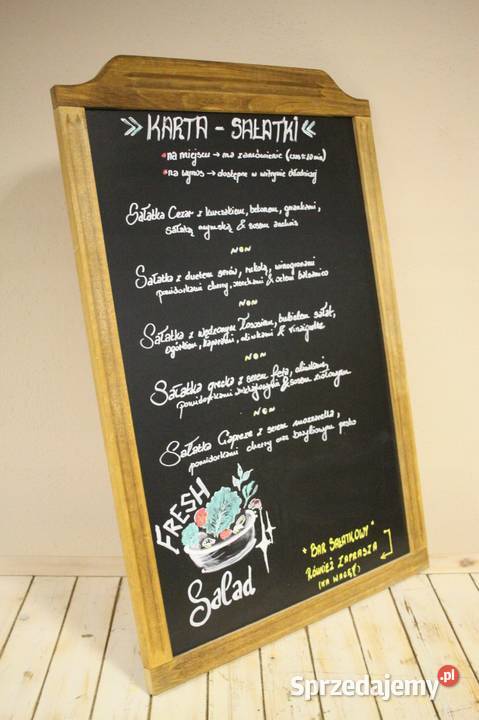 » KARTA - SAŁATKI «
* na miejscu → na zamówienie (czas ok 20 min)
* na wynos → dostępne w witrynie chłodniczej
Sałatka Cezar z kurczakiem, bekonem, grzankami,
sałatą rzymską & sosem anchois
Sałatka z duetem serów, rukolą, winogronami
pomidorkami cherry, orzechami & octem balsamico
Sałatka z wędzonym łososiem, bukietem sałat,
ogórkiem, kaparami, oliwkami & vinaigrette
Sałatka grecka z serem feta, oliwkami,
pomidorkami & sosem ziołowym
Sałatka Caprese z serem mozzarella,
pomidorkami cherry oraz bazyliowym pesto
FRESH
Salad
"BAR SAŁATKOWY"
RÓWNIEŻ ZAPRASZA
(NA WAGĘ)
Sprzedajemy.pl